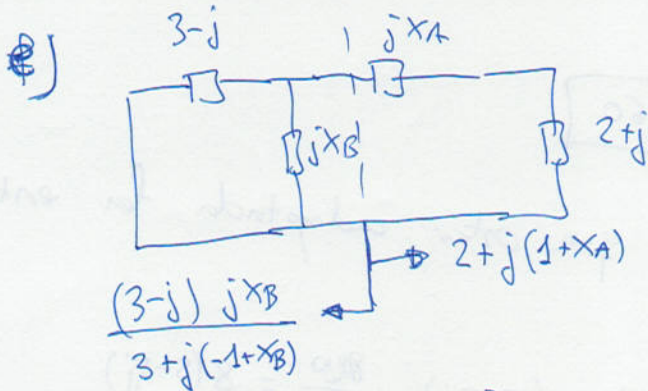 e)
3-j
jXA
jXB
2+j
2+j(1+XA)
(3-j) jXB
3+j(-1+XB)